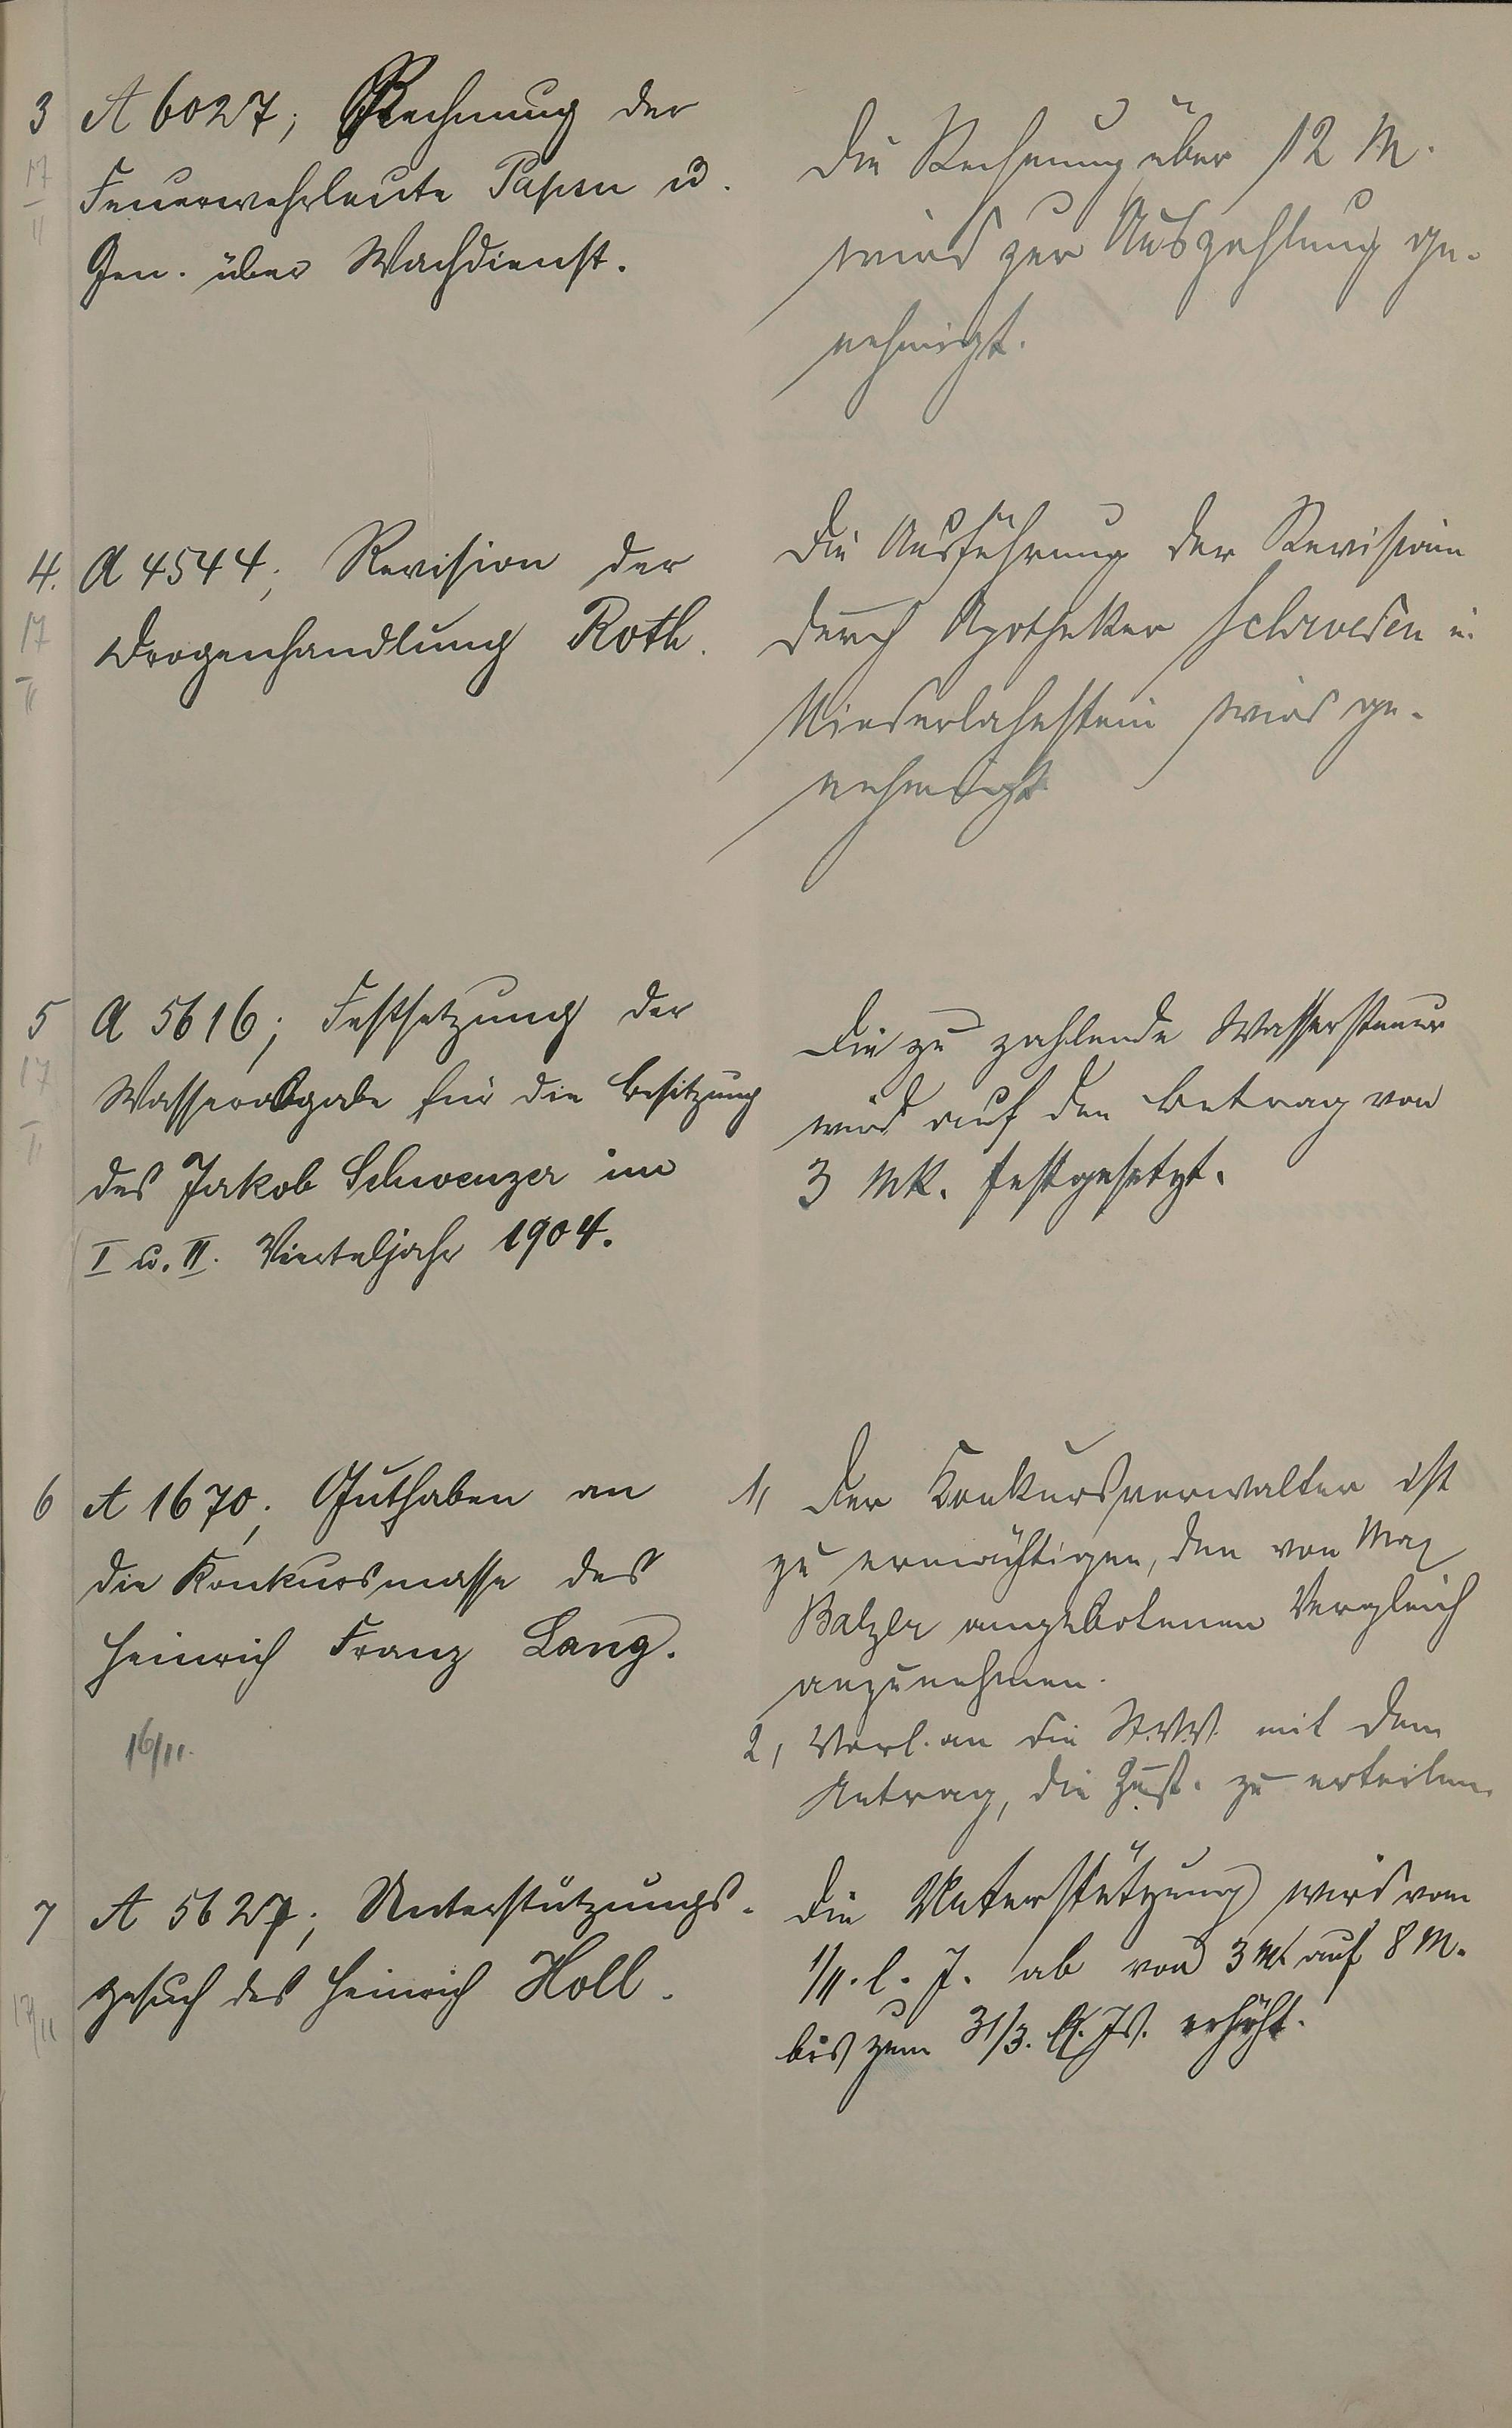 3 A 6027; Rechnung der
17
II
Feuerwehrleute Papen u.
Gen. über Wachdienst.
Die Rechnung über 12 M.
wird zur Auszahlung ge-
nehmigt.
4. A 4544; Revision der
17
II
Drogenhandlung Roth.
Die Ausführung der Revision
durch Apotheker Schweden i.
Niederlahnstein wird ge-
nehmigt
5 A 5616; Festsetzung der
17
II
Wasserabgabe für die Besitzung
des Jakob Schwenzer im
I u. II. Vierteljahr 1904.
Die zu zahlende Wassersteuer
wird auf den Betrag von
3 Mk. festgesetzt.
6 A 1670; Guthaben an
die Konkursmasse des
Heinrich Franz Lang.
16/11.
1, Der Konkursverwalter ist
zu ermächtigen, den von Max
Balzer angebotenen Vergleich
anzunehmen.
2, Vorl. an die St.V.V. mit dem
Antrag, die Zust. zu erteilen.
7 A 5627; Unterstützungs-
gesuch des Heinrich Holl.
17/11
Die Unterstützung wird vom
1/11. l. J. ab von 3 M. auf 8 M.
bis zum 31/3. Js. erhöht.